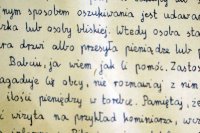 nym sposobem oszukiwania jest udawa
zka lub osoby bliskiej. Wtedy osoba sta
ra drzwi albo przesyła pieniądze lub p
Babciu, ja wiem, jak Ci pomóc. Zasto
agaduje Cię obcy, nie rozmawiaj z nim
ilości pieniędzy w torebce. Pamiętaj, że
wizyta na przykład kominiarza, wcz